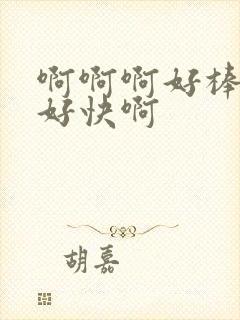 啊啊啊好棒
好快啊
胡嘉